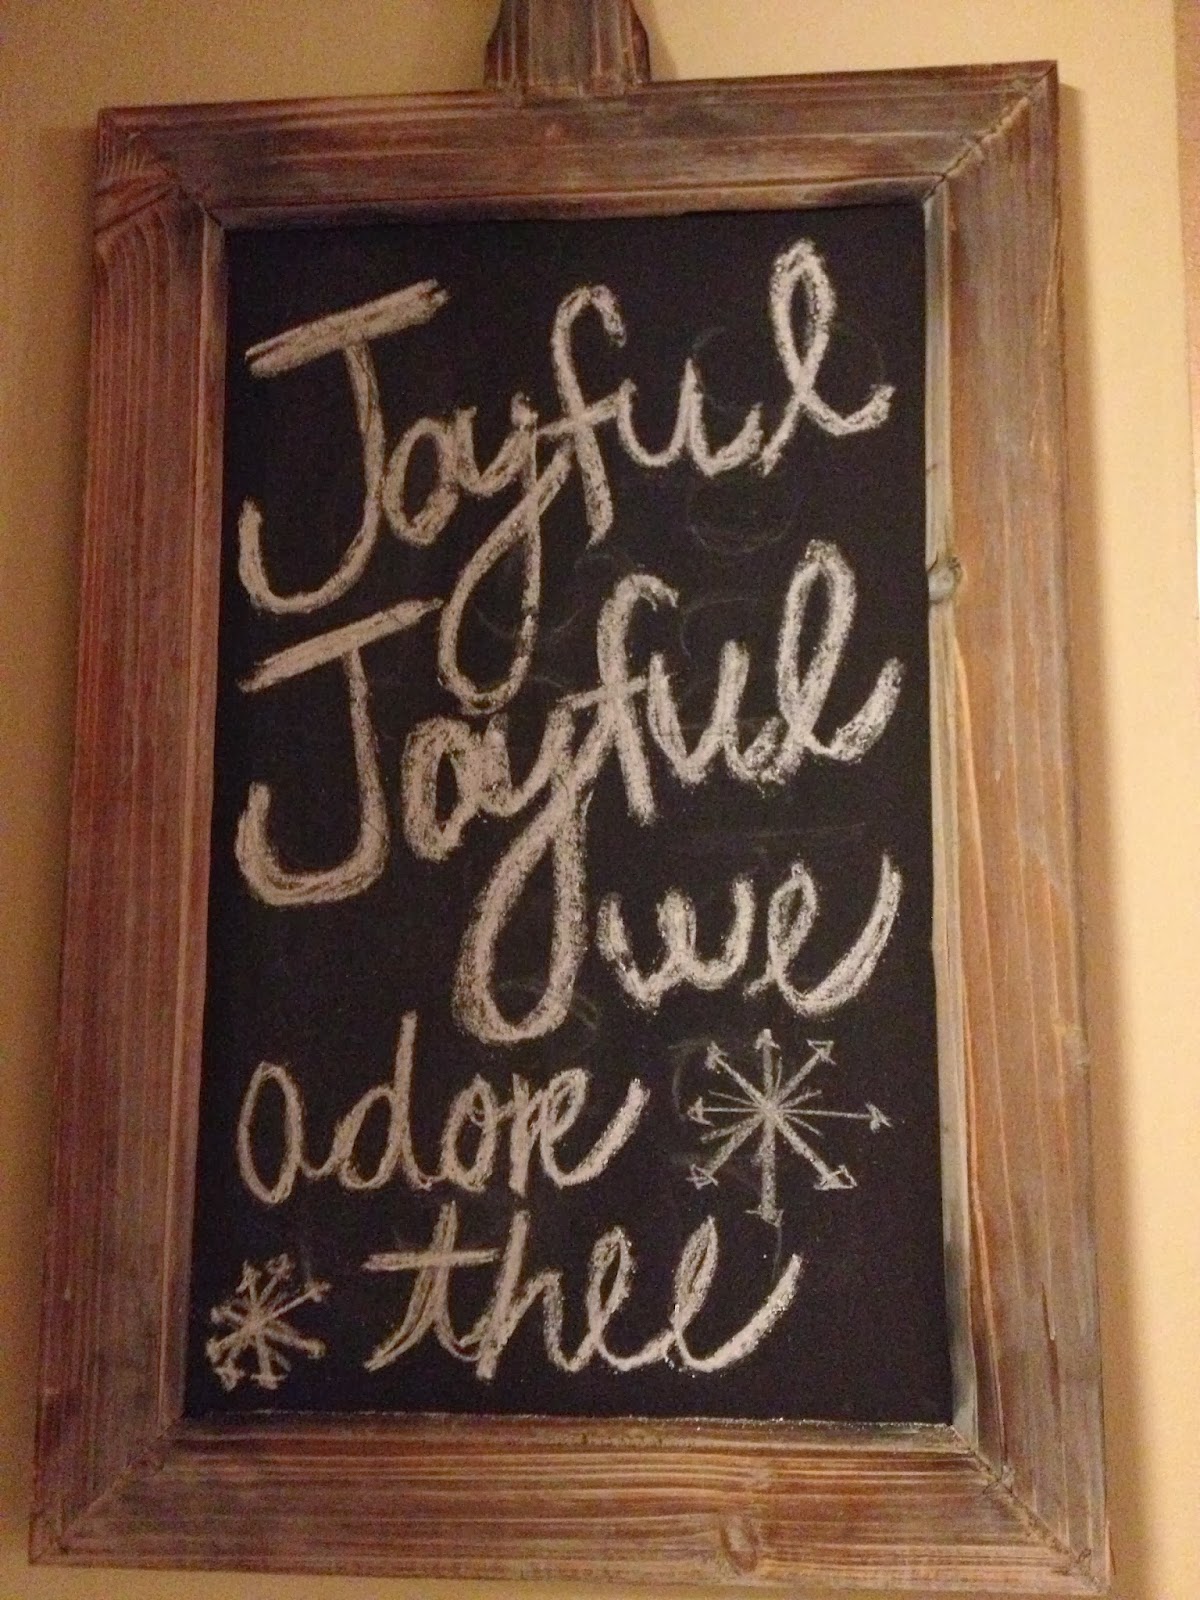 Joyful
Joyful
we
adore
thee